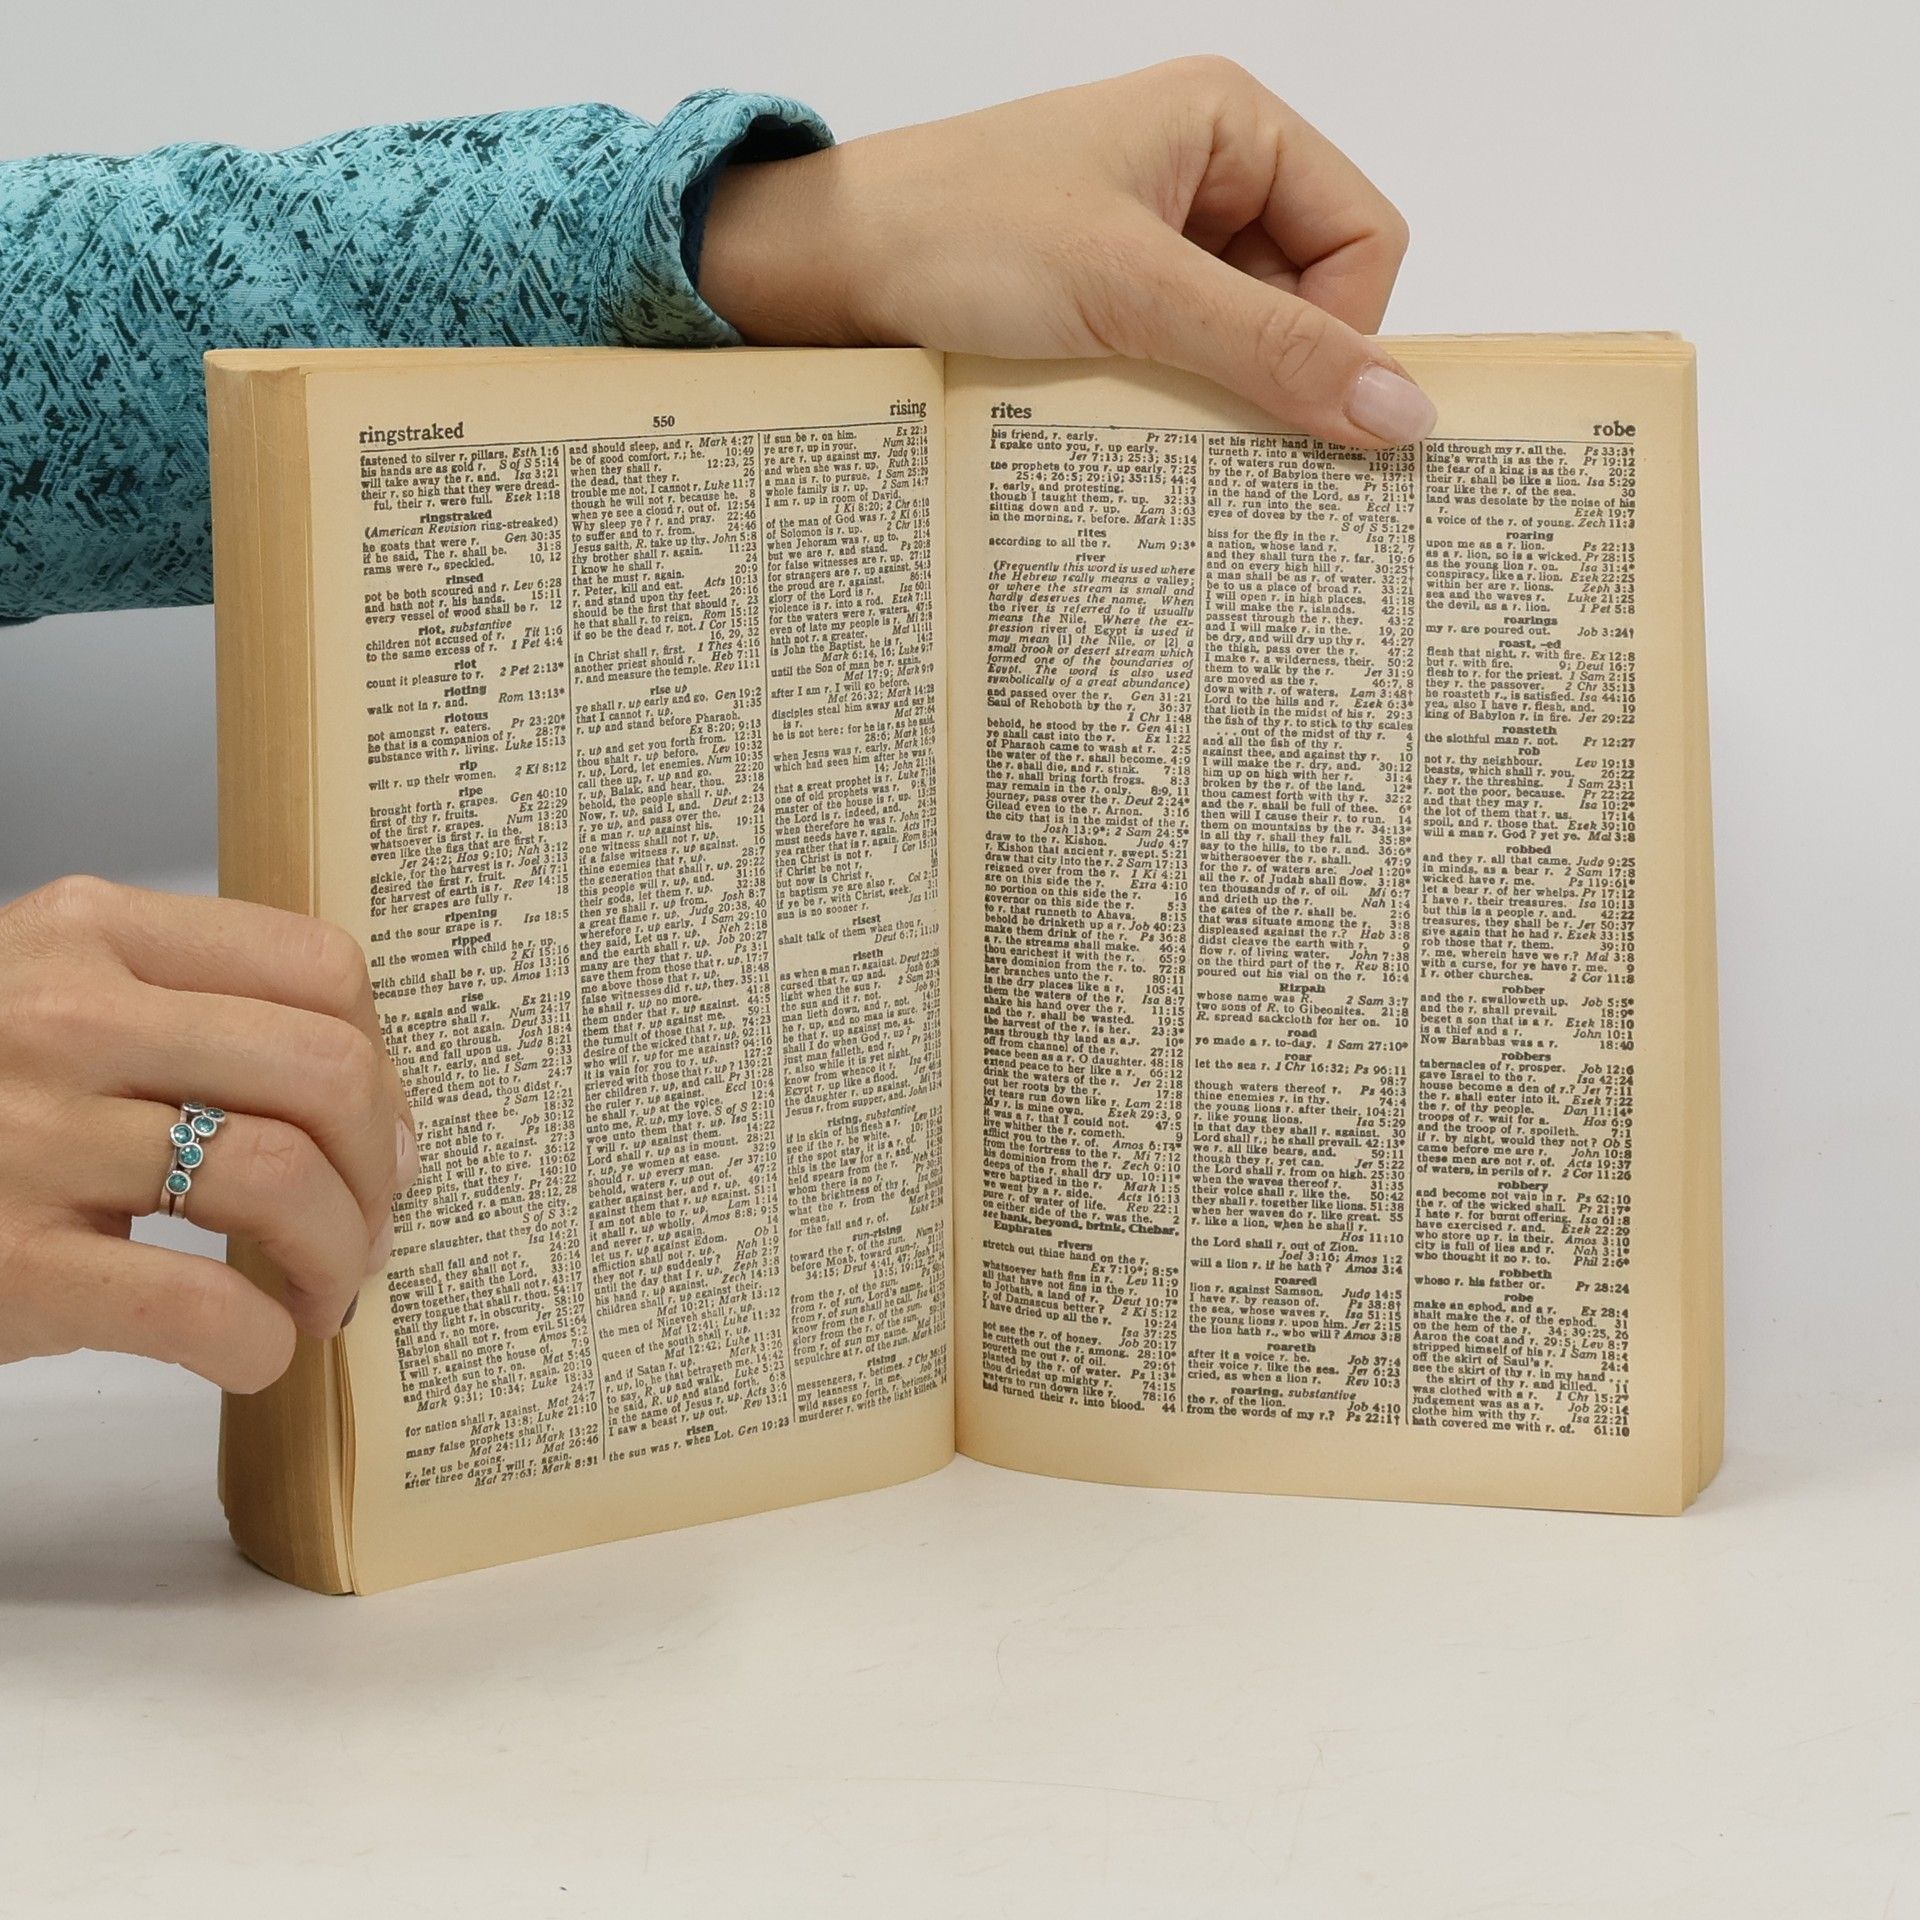 ringstraked
550
rising
fastened to silver r. pillars. Esth 1:6
his hands are as gold r. S of S 5:14
will take away the r. and. Isa 3:21
their r. so high that they were dread-
ful, their r. were full. Ezek 1:18
ringstraked
(American Revision ring-streaked)
he goats that were r. Gen 30:35
if he said, The r. shall be. 31:8
rams were r., speckled. 10, 12
rinsed
pot be both scoured and r. Lev 6:28
and hath not r. his hands. 15:11
every vessel of wood shall be r. 12
riot, substantive
children not accused of r. Tit 1:6
to the same excess of r. 1 Pet 4:4
riot
count it pleasure to r. 2 Pet 2:13*
rioting
walk not in r. and. Rom 13:13*
riotous
not amongst r. eaters. Pr 23:20*
he that is a companion of r. 28:7*
substance with r. living. Luke 15:13
rip
wilt r. up their women. 2 Ki 8:12
ripe
brought forth r. grapes. Gen 40:10
first of thy r. fruits. Ex 22:29
of the first r. grapes. Num 13:20
whatsoever is first r. in the. 18:13
even like the figs that are first r.
Jer 24:2; Hos 9:10; Nah 3:12
sickle, for the harvest is r. Joel 3:13
desired the first r. fruit. Mi 7:1
for harvest of earth is r. Rev 14:15
for her grapes are fully r. 18
ripening
and the sour grape is r. Isa 18:5
ripped
all the women with child he r. up.
2 Ki 15:16
with child shall be r. up. Hos 13:16
because they have r. up. Amos 1:13
rise
he r. again and walk. Ex 21:19
a sceptre shall r. Num 24:17
that they r. not again. Deut 33:11
r. and go through. Josh 18:4
thou and fall upon us. Judg 8:21
shalt r. early, and set. 9:33
he should r. to lie. 1 Sam 22:13
suffered them not to r. 24:7
child was dead, thou didst r.
2 Sam 12:21
r. against thee be. 18:32
right hand r. Job 30:12
are not able to r. Ps 18:38
war should r. against. 27:3
shall not be able to r. 36:12
night I will r. to give. 119:62
deep pits, that they r. 140:10
calamity shall r. suddenly. Pr 24:22
when the wicked r. a man. 28:12, 28
will r. now and go about the city.
S of S 3:2
prepare slaughter, that they do not r.
Isa 14:21
earth shall fall and not r. 24:20
deceased, they shall not r. 26:14
now will I r. saith the Lord. 33:10
down together, they shall not r. 43:17
every tongue that shall r. thou. 54:17
shall thy light r. in obscurity. 58:10
fall and r. no more. Jer 25:27
Babylon shall not r. from evil. 51:64
Israel shall no more r. Amos 5:2
I will r. against the house of. 7:9
he maketh sun to r. on. Mat 5:45
and third day he shall r. again. 20:19
Mark 9:31; 10:34; Luke 18:33
for nation shall r. against. Mat 24:7
Mark 13:8; Luke 21:10
many false prophets shall r.
Mat 24:11; Mark 13:22
r., let us be going. Mat 26:46
after three days I will r. again.
Mat 27:63; Mark 8:31
and should sleep, and r. Mark 4:27
be of good comfort, r.; he. 10:49
when they shall r. 12:23, 25
the dead, that they r. 26
trouble me not, I cannot r. Luke 11:7
though he will not r. because he. 8
when ye see a cloud r. out of. 12:54
Why sleep ye? r. and pray. 22:46
to suffer and to r. from. 24:46
Jesus saith, R. take up thy. John 5:8
thy brother shall r. again. 11:23
I know he shall r. 24
that he must r. again. 20:9
r. Peter, kill and eat. Acts 10:13
r. and stand upon thy feet. 26:16
should be the first that should r. 23
he that shall r. to reign. Rom 15:12
if so be the dead r. not. 1 Cor 15:15
16, 29, 32
in Christ shall r. first. 1 Thes 4:16
another priest should r. Heb 7:11
r. and measure the temple. Rev 11:1
rise up
ye shall r. up early and go. Gen 19:2
that I cannot r. up. 31:35
r. up and stand before Pharaoh.
Ex 8:20; 9:13
r. up and get you forth from. 12:31
thou shalt r. up before. Lev 19:32
r. up, Lord, let enemies. Num 10:35
call thee up, r. up and go. 22:20
r. up, Balak, and hear, thou. 23:18
behold, the people shall r. up. 24
Now, r. up, said I, and. Deut 2:13
r. ye up, and pass over the. 24
if a man r. up against his. 19:11
one witness shall not r. up. 15
if a false witness r. up against. 16
thine enemies that r. up. 28:7
the generation that shall r. up. 29:22
this people will r. up, and. 31:16
their gods, let them r. up. 32:38
then ye shall r. up from. Josh 8:7
a great flame r. up. Judg 20:38, 40
wherefore r. up early. 1 Sam 29:10
they said, Let us r. up. Neh 2:18
and the earth shall r. up. Job 20:27
many are they that r. up. Ps 3:1
save them from those that r. up. 17:7
me above those that r. up. 18:48
false witnesses did r. up, they. 35:11
he shall r. up no more. 41:8
them under that r. up against. 44:5
them that r. up against me. 59:1
the tumult of those that r. up. 74:23
desire of the wicked that r. up. 92:11
who will r. up for me against? 94:16
it is vain for you to r. up. 127:2
grieved with those that r. up? 139:21
her children r. up, and call. Pr 31:28
the ruler r. up against. Eccl 10:4
he shall r. up at the voice. 12:4
unto me, R. up, my love. S of S 2:10
woe unto them that r. up. Isa 5:11
I will r. up against them. 14:22
Lord shall r. up as in mount. 28:21
r. up, ye women at ease. 32:9
should r. up every man. Jer 37:10
behold, waters r. up out of. 47:2
gather against her, and r. up. 49:14
against them that r. up against. 51:1
I am not able to r. up. Lam 1:14
it shall r. up wholly. Amos 8:8; 9:5
and never r. up again. 14
let us r. up against Edom. Ob 1
affliction shall not r. up. Nah 1:9
they not r. up suddenly? Hab 2:7
until the day that I r. up. Zeph 3:8
his hand r. up against. Zech 14:13
children shall r. up against their.
Mat 10:21; Mark 13:12
the men of Nineveh shall r. up.
Mat 12:41; Luke 11:32
queen of the south shall r. up.
Mat 12:42; Luke 11:31
and if Satan r. up. Mark 3:26
r. up, lo, he that betrayeth me. 14:42
to say, R. up and walk. Luke 5:23
he said, R. up and stand forth. 6:8
in the name of Jesus r. up. Acts 3:6
I saw a beast r. up out. Rev 13:1
risen
the sun was r. when Lot. Gen 19:23
if sun be r. on him. Ex 22:3
ye are r. up in your. Num 32:14
ye are r. up against my. Judg 9:18
and when she was r. up. Ruth 2:15
a man is r. to pursue. 1 Sam 25:29
whole family is r. up. 2 Sam 14:7
I am r. up in room of David.
1 Ki 8:20; 2 Chr 6:10
of the man of God was r. 2 Ki 6:15
of Solomon is r. up. 2 Chr 13:6
when Jehoram was r. up to. 21:4
but we are r. and stand. Ps 20:8
for false witnesses are r. up. 27:12
for strangers are r. up against. 54:3
the proud are r. against. 86:14
glory of the Lord is r. Isa 60:1
violence is r. into a rod. Ezek 7:11
for the waters were r. waters. 47:5
even of late my people is r. Mi 2:8
hath not r. a greater. Mat 11:11
is John the Baptist, he is r. 14:2
Mark 6:14, 16; Luke 9:7
until the Son of man be r. again.
Mat 17:9; Mark 9:9
after I am r. I will go before.
Mat 26:32; Mark 14:28
disciples steal him away and say he
is r. Mat 27:64
he is not here: for he is r. as he said.
28:6; Mark 16:6
when Jesus was r. early. Mark 16:9
which had seen him after he was r.
14; John 21:14
that a great prophet is r. Luke 7:16
one of old prophets was r. 9:8, 19
master of the house is r. up. 13:25
the Lord is r. indeed, and. 24:34
when therefore he was r. John 2:22
must needs have r. again. Acts 17:3
yea rather that is r. again. Rom 8:34
then Christ is not r. 1 Cor 15:13
if Christ be not r.
but now is Christ r. 20
in baptism ye are also r. Col 2:12
if ye be r. with Christ, seek. 3:1
sun is no sooner r. Jas 1:11
risest
shalt talk of them when thou r.
Deut 6:7; 11:19
riseth
as when a man r. against. Deut 22:26
cursed that r. up and. Josh 6:26
light when the sun r. 2 Sam 23:4
the sun and it r. not. Job 9:7
man lieth down, and r. not. 14:12
he r. up, and no man is sure. 24:22
he that r. up against me, as. 27:7
shall I do when God r. up? 31:14
just man falleth, and r. Pr 24:16
r. also while it is yet night. 31:15
know from whence it r. Isa 47:11
Egypt r. up like a flood. Jer 46:8
the daughter r. up against. Mi 7:6
Jesus r. from supper, and. John 13:4
rising, substantive
if in skin of his flesh a r. Lev 13:2
see if the r. be white. 10; 19:43
if the spot stay, it is a r. of.
this is the law for a r. and. 14:56
held spears from the r. Neh 4:21
whom there is no r. Pr 30:31
to the brightness of thy r. Isa 60:3
what the r. from the dead should
mean. Mark 9:10
for the fall and r. of. Luke 2:34
sun-rising
toward the r. of the sun. Num 2:3
before Moab, toward sun-r. 21:11
34:15; Deut 4:41, 47; Josh 12:1
from the r. of the sun.
from r. of sun, Lord's name.
from r. of sun shall he call. Isa 41:25
know from the r. of the sun.
glory from the r. of the sun.
from r. of sun my name. Mal 1:11
sepulchre at r. of the sun. Mark 16:2
rising
messengers, r. betimes. 2 Chr 36:15
my leanness r. in me. Job 16:8
wild asses go forth, r. betimes. 24:5
murderer r. with the light killeth. 14
rites
robe
his friend, r. early. Pr 27:14
I spake unto you, r. up early.
Jer 7:13; 25:3; 35:14
the prophets to you r. up early. 7:25
25:4; 26:5; 29:19; 35:15; 44:4
r. early, and protesting. 11:7
though I taught them, r. up. 32:33
sitting down and r. up. Lam 3:63
in the morning, r. before. Mark 1:35
rites
according to all the r. Num 9:3*
river
(Frequently this word is used where
the Hebrew really means a valley;
or where the stream is small and
hardly deserves the name. When
the river is referred to it usually
means the Nile. Where the ex-
pression river of Egypt is used it
may mean [1] the Nile, or [2] a
small brook or desert stream which
formed one of the boundaries of
Egypt. The word is also used
symbolically of a great abundance)
and passed over the r. Gen 31:21
Saul of Rehoboth by the r. 36:37
1 Chr 1:48
behold, he stood by the r. Gen 41:1
ye shall cast into the r. Ex 1:22
of Pharaoh came to wash at r. 2:5
the water of the r. shall become. 4:9
the r. shall die, and r. stink. 7:18
the r. shall bring forth frogs. 8:3
may remain in the r. only. 8:9, 11
journey, pass over the r. Deut 2:24*
Gilead even to the r. Arnon. 3:16
the city that is in the midst of the r.
Josh 13:9*; 2 Sam 24:5*
draw to the r. Kishon. Judg 4:7
r. Kishon that ancient r. swept. 5:21
draw that city into the r. 2 Sam 17:13
reigned over from the r. 1 Ki 4:21
are on this side the r. Ezra 4:10
no portion on this side the r. 16
governor on this side the r. 5:3
to r. that runneth to Ahava. 8:15
behold he drinketh up a r. Job 40:23
make them drink of the r. Ps 36:8
a r. the streams shall make. 46:4
thou enrichest it with the r. 65:9
have dominion from the r. to. 72:8
her branches unto the r. 80:11
in the dry places like a r. 105:41
them the waters of the r. Isa 8:7
shake his hand over the r. 11:15
and the r. shall be wasted. 19:5
the harvest of the r. is her. 23:3*
pass through thy land as a r. 10*
off from channel of the r. 27:12
peace been as a r. O daughter. 48:18
extend peace to her like a r. 66:12
drink the waters of the r. Jer 2:18
out her roots by the r. 17:8
let tears run down like r. Lam 2:18
My r. is mine own. Ezek 29:3, 9
it was a r. that I could not. 47:5
live whither the r. cometh. 9
afflict you to the r. of. Amos 6:14*
from the fortress to the r. Mi 7:12
his dominion from the r. Zech 9:10
deeps of the r. shall dry up. 10:11*
were baptized in the r. Mark 1:5
we went by a r. side. Acts 16:13
pure r. of water of life. Rev 22:1
on either side of the r. was the. 2
see bank, beyond, brink, Chebar,
Euphrates
rivers
stretch out thine hand on the r.
Ex 7:19*; 8:5*
whatsoever hath fins in r. Lev 11:9
all that have not fins in the r. 10
to Jotbath, a land of r. Deut 10:7*
r. of Damascus better? 2 Ki 5:12
I have dried up all the r. 19:24
Isa 37:25
not see the r. of honey. Job 20:17
he cutteth out the r. among. 28:10*
poureth me out r. of oil. 29:6†
planted by the r. of water. Ps 1:3*
thou driedst up mighty r. 74:15
waters to run down like r. 78:16
had turned their r. into blood. 44
set his right hand in the
turneth r. into a wilderness. 107:33
r. of waters run down. 119:136
by the r. of Babylon there we. 137:1
and r. of waters in the. Pr 5:16†
in the hand of the Lord, as r. 21:1*
all r. run into the sea. Eccl 1:7
eyes of doves by the r. of waters.
S of S 5:12*
hiss for the fly in the r. Isa 7:18
a nation, whose land r. 18:2, 7
and they shall turn the r. far. 19:6
and on every high hill r. 30:25†
a man shall be as r. of water. 32:2†
be to us a place of broad r. 33:21
I will open r. in high places. 41:18
I will make the r. islands. 42:15
passest through the r. they. 43:2
and I will make r. in the. 19, 20
be dry, and will dry up thy r. 44:27
the thigh, pass over the r. 47:2
I make r. a wilderness, their. 50:2
them to walk by the r. Jer 31:9
are moved as the r. 46:7, 8
down with r. of waters. Lam 3:48†
Lord to the hills and r. Ezek 6:3*
that lieth in the midst of his r. 29:3
the fish of thy r. to stick to thy scales
. . . out of the midst of thy r. 4
and all the fish of thy r. 5
against thee, and against thy r. 10
I will make the r. dry, and. 30:12
him up on high with her r. 31:4
broken by the r. of the land. 12*
thou camest forth with thy r. 32:2
and the r. shall be full of thee. 6*
then will I cause their r. to run. 14
them on mountains by the r. 34:13*
in all thy r. shall they fall. 35:8*
say to the hills, to the r. and. 36:6*
whithersoever the r. shall. 47:9
for the r. of waters are. Joel 1:20*
all the r. of Judah shall flow. 3:18*
ten thousands of r. of oil. Mi 6:7
and drieth up the r. Nah 1:4
the gates of the r. shall be. 2:6
that was situate among the r. 3:8
displeased against the r.? Hab 3:8
didst cleave the earth with r. 9
flow r. of living water. John 7:38
on the third part of the r. Rev 8:10
poured out his vial on the r. 16:4
Rizpah
whose name was R. 2 Sam 3:7
two sons of R. to Gibeonites. 21:8
R. spread sackcloth for her on. 10
road
ye made a r. to-day. 1 Sam 27:10*
roar
let the sea r. 1 Chr 16:32; Ps 96:11
98:7
though waters thereof r. Ps 46:3
thine enemies r. in thy. 74:4
the young lions r. after their. 104:21
r. like young lions. Isa 5:29
in that day they shall r. against. 30
Lord shall r.; he shall prevail. 42:13*
we r. all like bears, and. 59:11
though they r. yet can. Jer 5:22
the Lord shall r. from on high. 25:30
when the waves thereof r. 31:35
their voice shall r. like the. 50:42
they shall r. together like lions. 51:38
when her waves do r. like great. 55
r. like a lion, when he shall r.
Hos 11:10
the Lord shall r. out of Zion.
Joel 3:16; Amos 1:2
will a lion r. if he hath? Amos 3:4
roared
lion r. against Samson. Judg 14:5
I have r. by reason of. Ps 38:8†
the sea, whose waves r. Isa 51:15
the young lions r. upon him. Jer 2:15
the lion hath r., who will? Amos 3:8
roareth
after it a voice r. he. Job 37:4
their voice r. like the sea. Jer 6:23
cried, as when a lion r. Rev 10:3
roaring, substantive
the r. of the lion. Job 4:10
from the words of my r.? Ps 22:1†
old through my r. all the. Ps 33:3†
king's wrath is as the r. Pr 19:12
the fear of a king is as the r. 20:2
their r. shall be like a lion. Isa 5:29
roar like the r. of the sea. 30
land was desolate by the noise of his
r. Ezek 19:7
a voice of the r. of young. Zech 11:3
roaring
upon me as a r. lion. Ps 22:13
as a r. lion, so is a wicked. Pr 28:15
as the young lion r. on. Isa 31:4*
conspiracy, like a r. lion. Ezek 22:25
within her are r. lions. Zeph 3:3
sea and the waves r. Luke 21:25
the devil, as a r. lion. 1 Pet 5:8
roarings
my r. are poured out. Job 3:24†
roast, -ed
flesh that night, r. with fire. Ex 12:8
but r. with fire. 9; Deut 16:7
flesh to r. for the priest. 1 Sam 2:15
they r. the passover. 2 Chr 35:13
he roasteth r., is satisfied. Isa 44:16
yea, also I have r. flesh, and. 19
king of Babylon r. in fire. Jer 29:22
roasteth
the slothful man r. not. Pr 12:27
rob
not r. thy neighbour. Lev 19:13
beasts, which shall r. you. 26:22
they r. the threshing. 1 Sam 23:1
r. not the poor, because. Pr 22:22
and that they may r. Isa 10:2*
the lot of them that r. us. 17:14
spoil, and r. those that. Ezek 39:10
will a man r. God? yet ye. Mal 3:8
robbed
and they r. all that came. Judg 9:25
in minds, as a bear r. 2 Sam 17:8
wicked have r. me. Ps 119:61*
let a bear r. of her whelps. Pr 17:12
I have r. their treasures. Isa 10:13
but this is a people r. and. 42:22
treasures, they shall be r. Jer 50:37
give again that he had r. Ezek 33:15
rob those that r. them. 39:10
r. me, wherein have we r.? Mal 3:8
with a curse, for ye have r. me. 9
I r. other churches. 2 Cor 11:8
robber
and the r. swalloweth up. Job 5:5*
and the r. shall prevail. 18:9*
beget a son that is a r. Ezek 18:10
is a thief and a r. John 10:1
Now Barabbas was a r. 18:40
robbers
tabernacles of r. prosper. Job 12:6
gave Israel to the r. Isa 42:24
house become a den of r.? Jer 7:11
the r. shall enter into it. Ezek 7:22
the r. of thy people. Dan 11:14*
troops of r. wait for a. Hos 6:9
and the troop of r. spoileth. 7:1
if r. by night, would they not? Ob 5
came before me are r. John 10:8
these men are not r. of. Acts 19:37
of waters, in perils of r. 2 Cor 11:26
robbery
and become not vain in r. Ps 62:10
the r. of the wicked shall. Pr 21:7*
I hate r. for burnt offering. Isa 61:8
have exercised r. and. Ezek 22:29
who store up r. in their. Amos 3:10
city is full of lies and r. Nah 3:1*
who thought it no r. to. Phil 2:6*
robbeth
whoso r. his father or. Pr 28:24
robe
make an ephod, and a r. Ex 28:4
shalt make the r. of the ephod. 31
on the hem of the r. 34; 39:25, 26
Aaron the coat and r. 29:5; Lev 8:7
stripped himself of his r. 1 Sam 18:4
off the skirt of Saul's r. 24:4
see the skirt of thy r. in my hand . . .
the skirt of thy r. and killed. 11
was clothed with a r. 1 Chr 15:27
judgement was as a r. Job 29:14
clothe him with thy r. Isa 22:21
hath covered me with r. of. 61:10